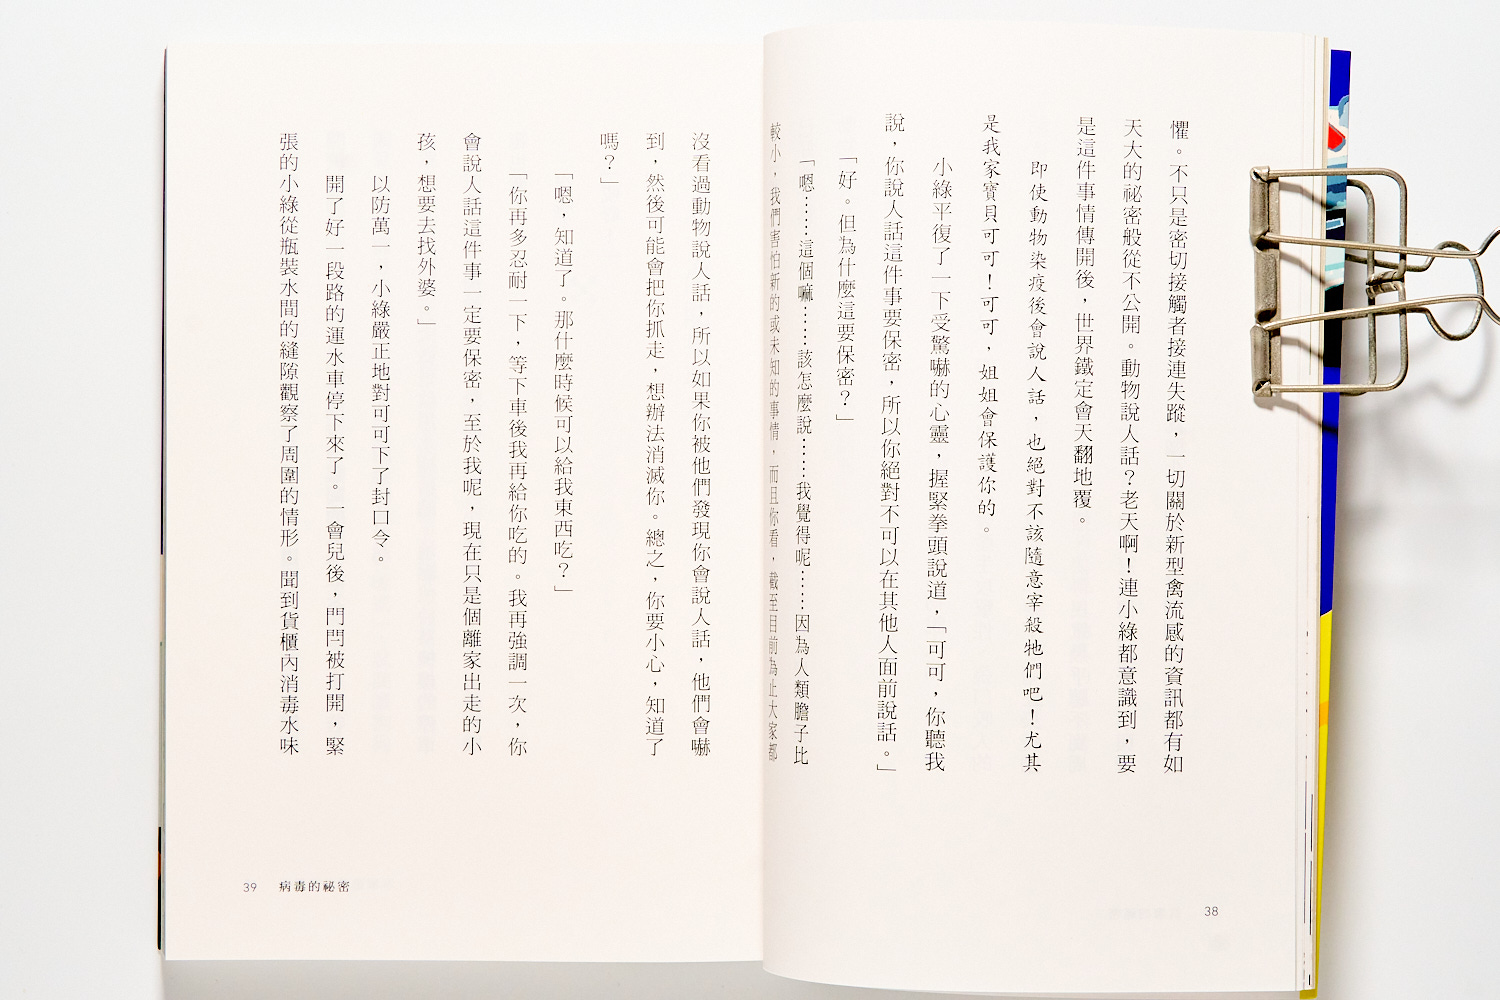 懼。不只是密切接觸者接連失蹤，一切關於新型禽流感的資訊都有如
天大的祕密般從不公開。動物說人話？老天啊！連小綠都意識到，要
是這件事情傳開後，世界鐵定會天翻地覆。
即使動物染疫後會說人話，也絕對不該隨意宰殺牠們吧！尤其
是我家寶貝可可！可可，姐姐會保護你的。
小綠平復了一下受驚嚇的心靈，握緊拳頭說道，「可可，你聽我
說，你說人話這件事要保密，所以你絕對不可以在其他人面前說話。」
「好。但為什麼這要保密？」
「嗯……這個嘛……該怎麼說……我覺得呢……因為人類膽子比
較小，我們害怕新的或未知的事情，而且你看，截至目前為止大家都
38
沒看過動物說人話，所以如果你被他們發現你會說人話，他們會嚇
到，然後可能會把你抓走，想辦法消滅你。總之，你要小心，知道了
嗎？」
「嗯，知道了。那什麼時候可以給我東西吃？」
「你再多忍耐一下，等下車後我再給你吃的。我再強調一次，你
會說人話這件事一定要保密，至於我呢，現在只是個離家出走的小
孩，想要去找外婆。」
以防萬一，小綠嚴正地對可可下了封口令。
開了好一段路的運水車停下來了。一會兒後，門閂被打開，緊
張的小綠從瓶裝水間的縫隙觀察了周圍的情形。聞到貨櫃內消毒水味
39 病毒的祕密